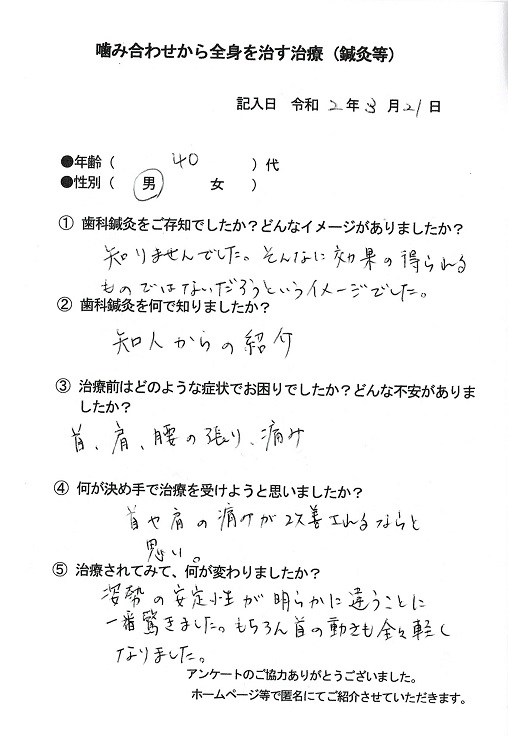 噛み合わせから全身を治す治療（鍼灸等）
記入日　令和 2 年 3 月 21 日
●年齢（　40　）代
●性別（　男　女　）
① 歯科鍼灸をご存知でしたか？どんなイメージがありましたか？
知りませんでした。そんなに効果の得られる
ものではないだろうというイメージでした。
② 歯科鍼灸を何で知りましたか？
知人からの紹介
③ 治療前はどのような症状でお困りでしたか？どんな不安がありま
したか？
首、肩、腰の張り、痛み
④ 何が決め手で治療を受けようと思いましたか？
首や肩の痛みが改善されるならと
思い。
⑤ 治療されてみて、何が変わりましたか？
姿勢の安定性が明らかに違うことに
一番驚きました。もちろん首の動きも全々軽く
なりました。
アンケートのご協力ありがとうございました。
ホームページ等で匿名にてご紹介させていただきます。